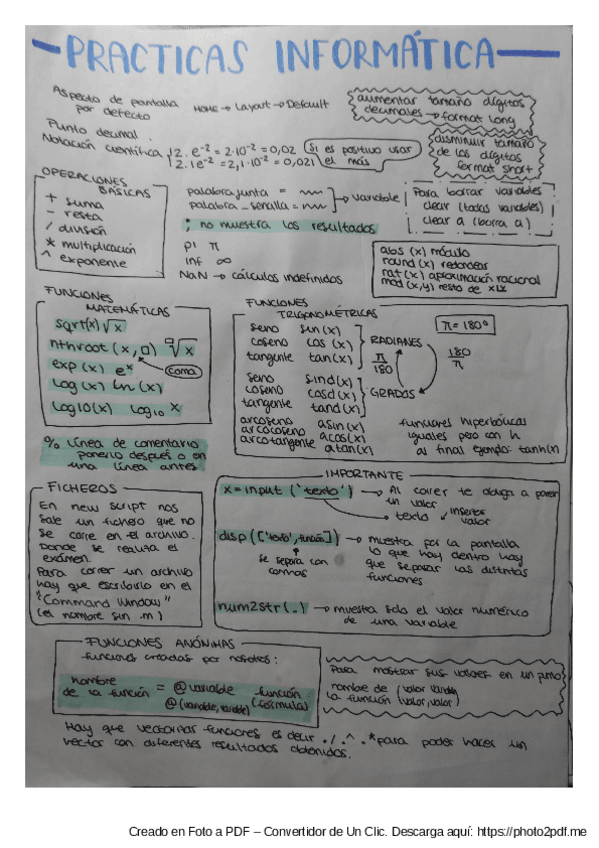 PRACTICAS INFORMÁTICA
Aspecto de pantalla
por defecto
HOME → Layart → Default
aumentar tamaño dígitos
decimales → format long
Punto decimal .
Notación científica
2. e⁻² = 2·10⁻² = 0,02
2.1e⁻² = 2,1·10⁻² = 0,021
Si es positivo usar
el más
disminuir tamaño
de los dígitos
format short
OPERACIONES
BÁSICAS
+ suma
- resta
/ división
* multiplicación
^ exponente
palabrajunta =
palabra_sencilla =
→ variable
; no muestra los resultados
Para borrar variables
clear (todas variables)
clear a (borra a)
pi π
inf ∞
NaN → cálculos indefinidos
abs (x) módulo
round (x) redondear
rat (x) aproximación racional
mod (x,y) resto de
FUNCIONES
MATEMÁTICAS
sqrt(x) √x
nthroot (x,□) □√x
exp(x) eˣ
coma
log(x) ln(x)
log10(x) log₁₀ x
FUNCIONES
TRIGONOMÉTRICAS
π = 180º
seno sin(x)
coseno cos (x)
tangente tan(x)
RADIANES
π/180
180/π
seno sind(x)
coseno cosd(x)
tangente tand(x)
GRADOS
arcoseno asin(x)
arcocoseno acos(x)
arcotangente atan(x)
funciones hiperbólicas
iguales pero con h
al final ejemplo: tanh(x)
% línea de comentario
ponerlo después o en
una línea antes
FICHEROS
En new script nos
sale un fichero que no
se corre en el archivo.
Donde se realiza el
exámen.
Para correr un archivo
hay que escribirlo en el
"Command Window"
(el nombre sin .m)
IMPORTANTE
x = input ('texto') → Al correr te obliga a poner
un valor
→ texto ↙ inserte
valor
disp (['texto', función]) → muestra por la pantalla
lo que hay dentro hay
que separar las distintas
funciones
se separa con
commas
num2str(.) → muestra solo el valor numérico
de una variable
FUNCIONES ANÓNIMAS
funciones creadas por nosotros:
nombre
de la función = @variable función
@(variable,variable) (fórmula)
Para mostrar sus valores en un punto
nombre de
la función (valor,valor)
Hay que vectorizar funciones es decir ./ .^ .* para poder hacer un
vector con diferentes resultados obtenidos.
Creado en Foto a PDF – Convertidor de Un Clic. Descarga aquí: https://photo2pdf.me